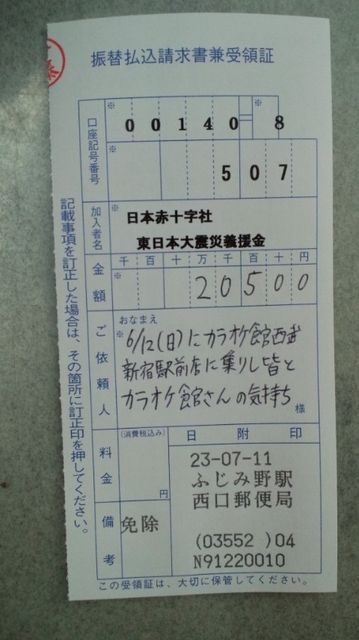 振替払込請求書兼受領証
口座記号番号
※
00140
※
8
※
507
加入者名
※
日本赤十字社
東日本大震災義援金
金額
千 百 十 万 千 百 十 円
※
20500
ご依頼人
おなまえ
※
6/12(日)にカラオケ館西武
新宿駅前店に集りし皆と
カラオケ館さんの気持ち
様
料金
(消費税込み)
円
備考
免除
日附印
23-07-11
ふじみ野駅
西口郵便局
(03552 )04
N91220010
記載事項を訂正した場合は、その箇所に訂正印を押してください。
この受領証は、大切に保管してください。